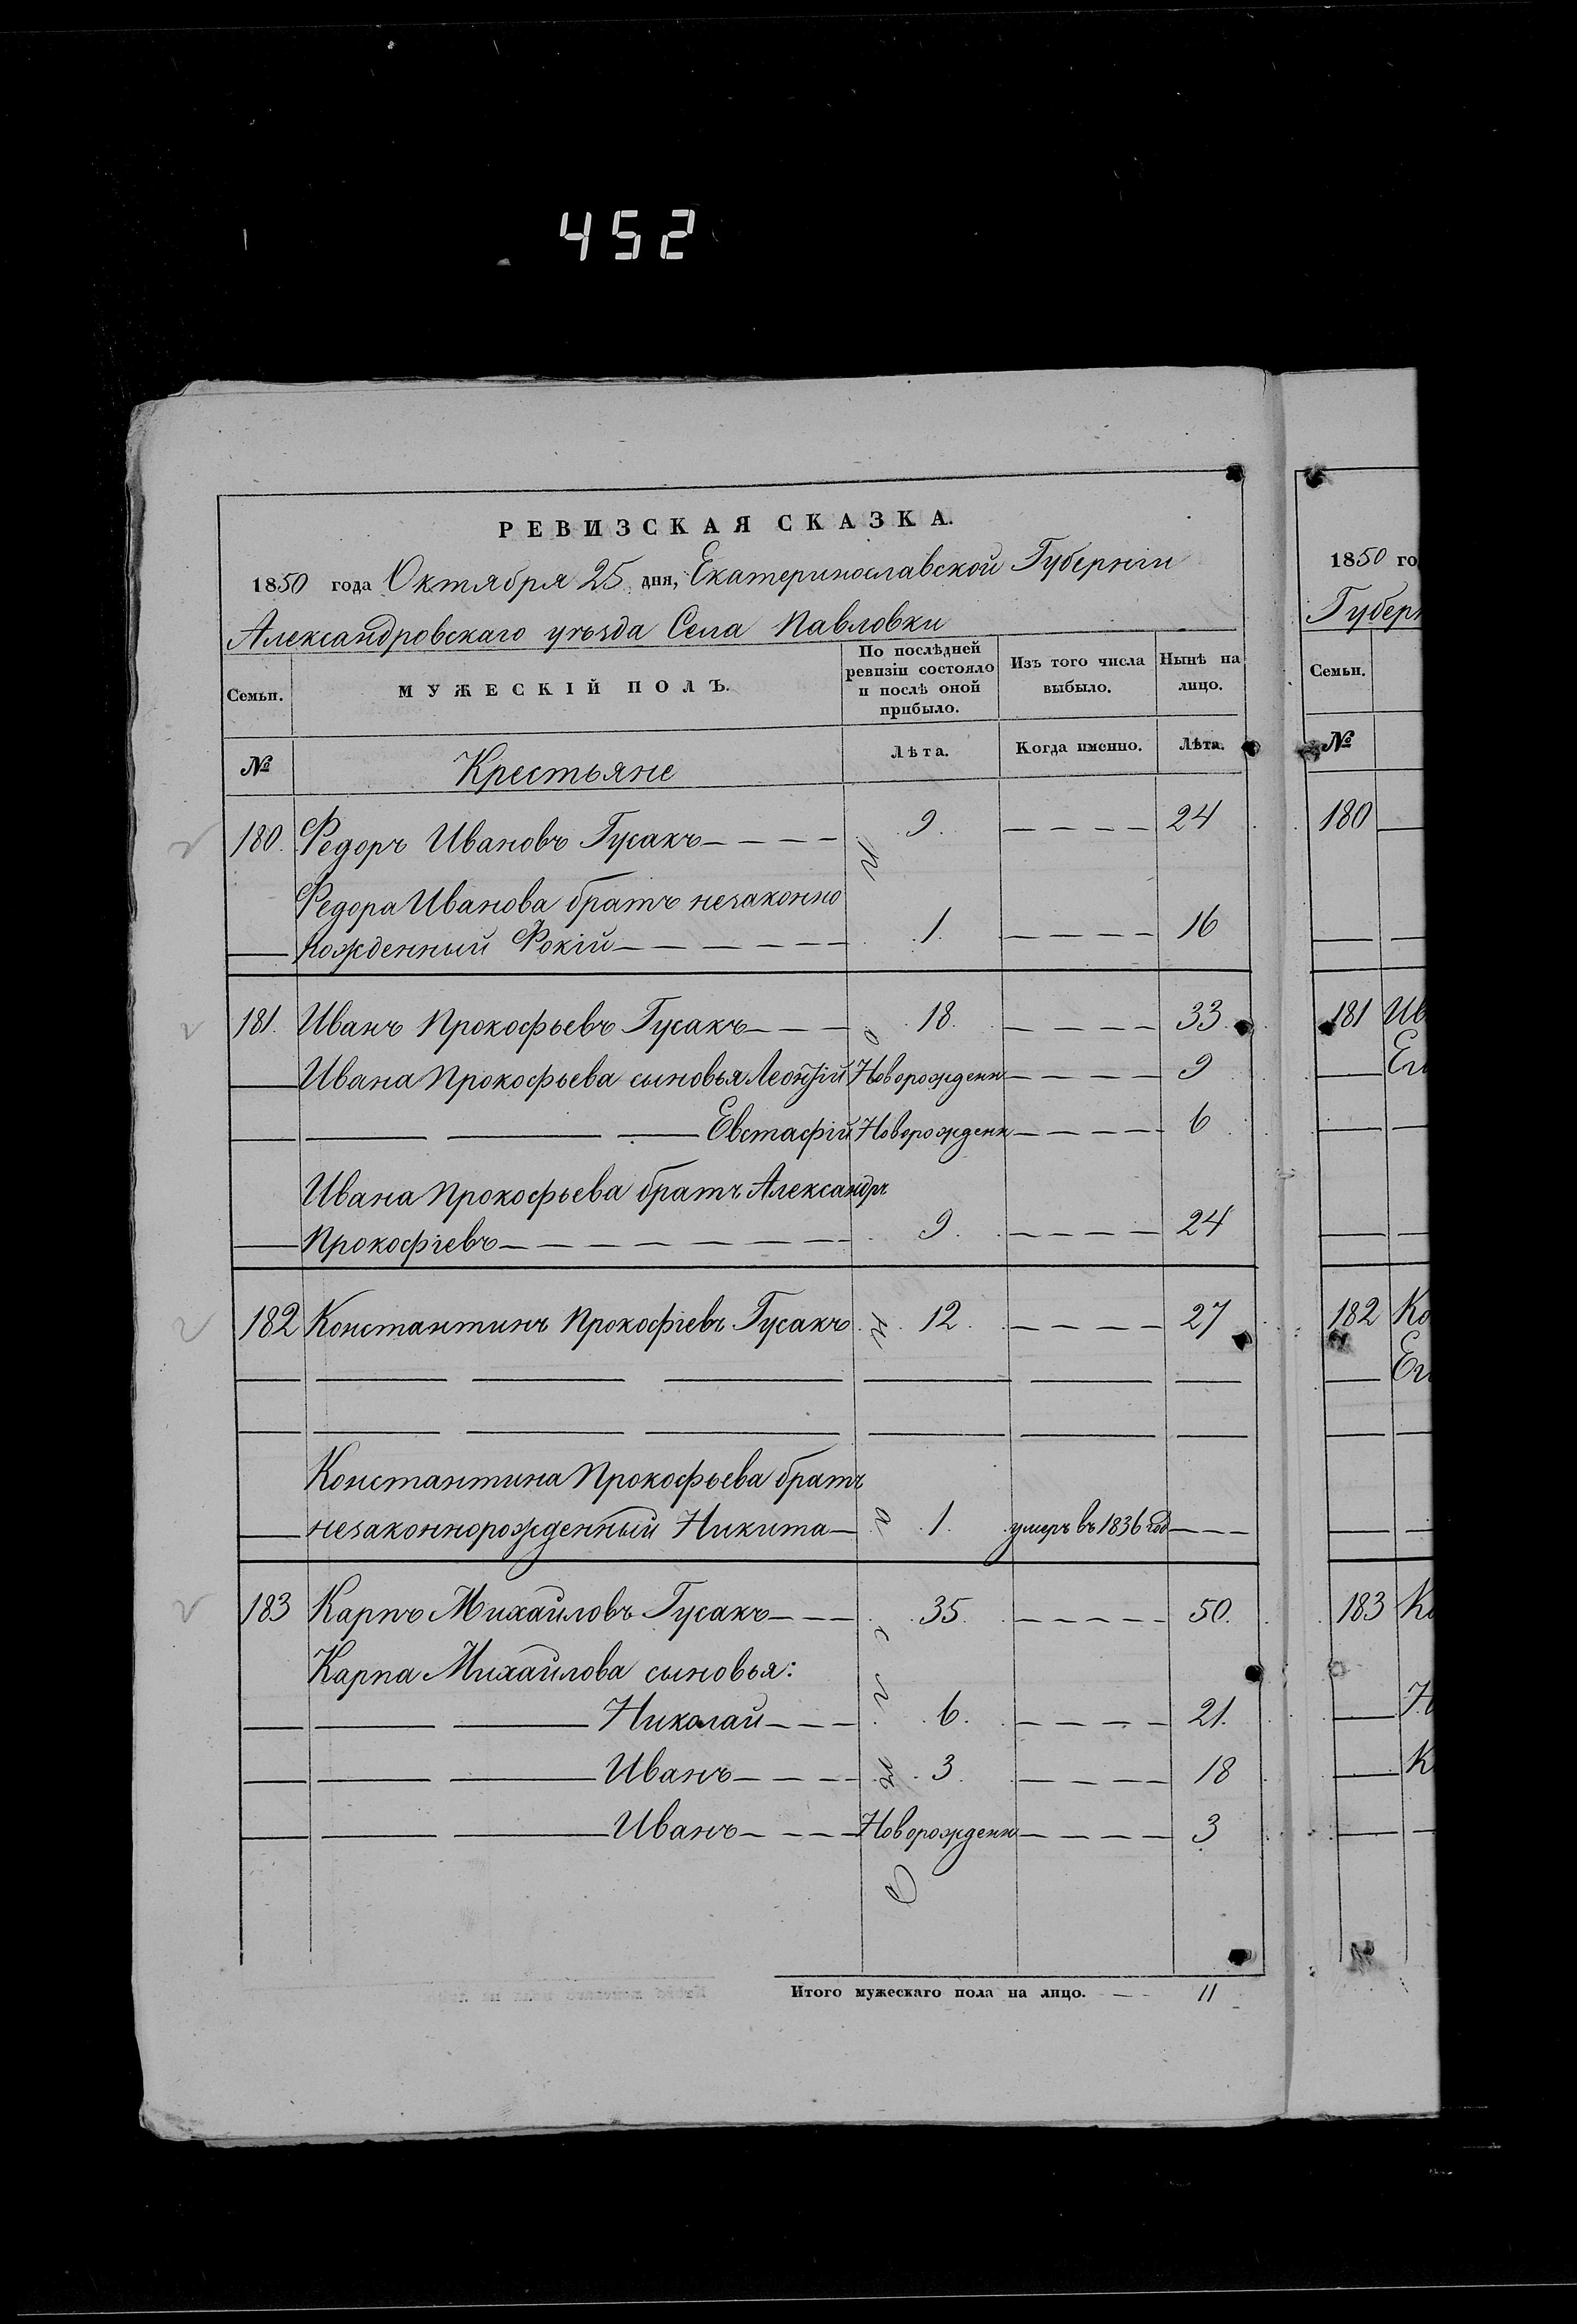 452
РЕВИЗСКАЯ СКАЗКА.
1850 года Октября 25 дня, Екатеринославской Губерніи
Александровскаго уѣзда Села Павловки
Семьи. МУЖЕСКІЙ ПОЛЪ. По послѣдней ревизіи состояло и послѣ оной прибыло. Изъ того числа выбыло. Нынѣ на лицо.
№ Крестьяне Лѣта. Когда именно. Лѣта.
180. Ѳедоръ Ивановъ Гусакъ 9. 24
Ѳедора Иванова братъ незаконно
рожденный Фокій 1. 16
181. Иванъ Прокофьевъ Гусакъ 18. 33.
Ивана Прокофьева сыновья Леонтій Новорожденн 9
Евстафій Новорожденн 6
Ивана Прокофьева братъ Александръ
Прокофіевъ 9. 24
182 Константинъ Прокофіевъ Гусакъ 12. 27
Константина Прокофьева братъ
незаконнорожденный Никита 1. умеръ въ 1836 год
183 Карпъ Михайловъ Гусакъ 35. 50.
Карпа Михайлова сыновья:
Николай 6. 21.
Иванъ 3. 18
Иванъ Новорожденн 3
Итого мужескаго пола на лицо. 11
1850 го
Губерн
Семьи.
№
180
181 Ив
Ег
182 Ко
Ег
183 Ка
Н
К